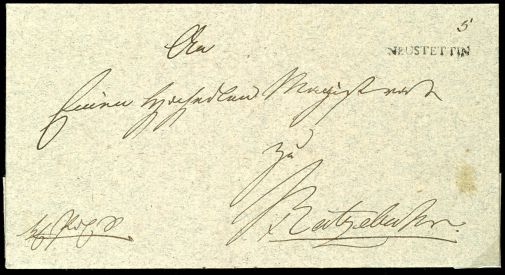 5
NEUSTETTIN
An
Einen Hochedlen Magistrat
zu
Ratzebuhr.